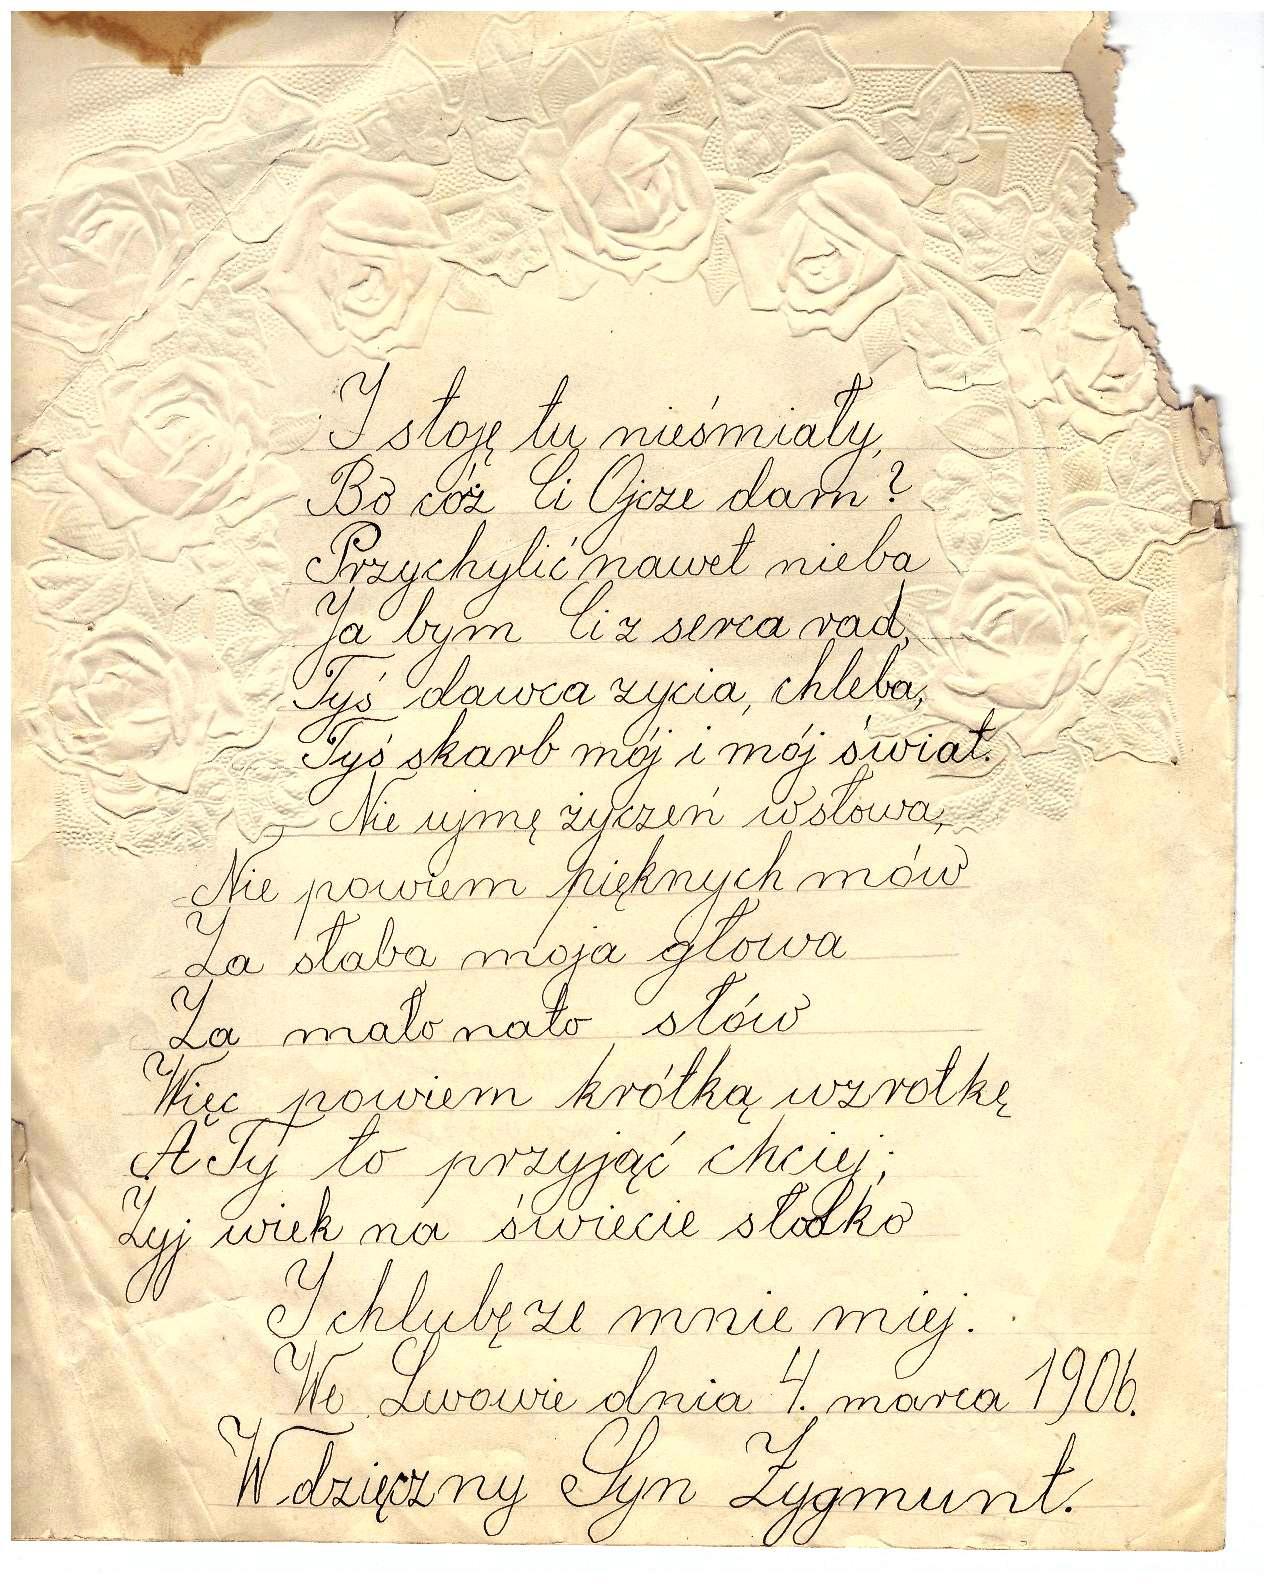 I stoję tu nieśmiały,
Bo cóż Ci Ojcze dam?
Przychylić nawet nieba
Ja bym Ci z serca rad,
Tyś dawca zycia, chleba,
Tyś skarb mój i mój świat.
Nie ujmę życzeń w słowa,
Nie powiem pięknych mów
Za słaba moja głowa
Za mało na to słów
Więc powiem krótką wzrotkę
A Ty to przyjąć chciej;
Zyj wiek na świecie słodko
I chlubę ze mnie miej.
We Lwowie dnia 4. marca 1906.
Wdzięczny Syn Zygmunt.